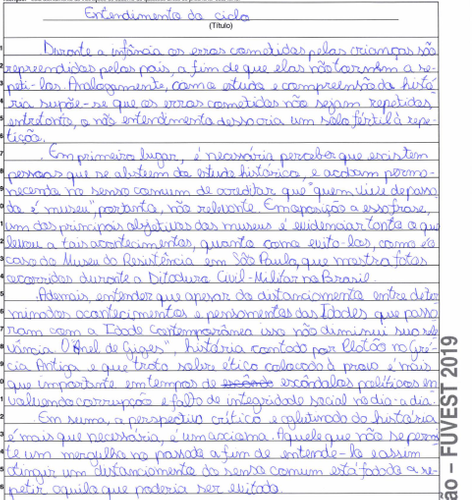 Entendimento do ciclo
(Título)
Durante a infância os erros cometidos pelas crianças são
repreendidos pelos pais, a fim de que elas não tornem a re-
peti-los. Analogamente, com o estudo e compreensão da histó-
ria supõe-se que os erros cometidos não sejam repetidos,
entretanto, o não entendimento dessa cria um solo fértil à repe-
tição.
Em primeiro lugar, é necessário perceber que existem
pessoas que se abstem do estudo histórico, e acabam perma-
necendo no senso comum de acreditar que "quem vive de passa-
do é museu", portanto, não relevante. Em oposição a essa frase,
um dos principais objetivos dos museus é evidenciar tanto o que
levou a tais acontecimentos, quanto como evita-los, como é o
caso do Museu da Resistência em São Paulo, que mostra fatos
ocorridos durante a Ditadura Civil-Militar no Brasil.
Ademais, entender que apesar do distanciamento entre deter
minados acontecimentos e pensamentos das Idades que passa
ram com a Idade Contemporânea isso não diminui sua rele
vância. O "Anel de Giges", história contada por Platão na Gré
cia Antiga e que trata sobre ético colocado à prova é mais
que importante em tempos de escândalos políticos en
volvendo corrupção e falta de integridade social no dia-a-dia.
Em suma, a perspectiva crítica e aglutinada da história
é mais que necessária, é uma carma. Aquele que não se permi
te um mergulho no passado a fim de entende-lo e assim
atingir um distanciamento do senso comum está fadado a re-
petir aquilo que poderia ser evitado.
ão – FUVEST 2019